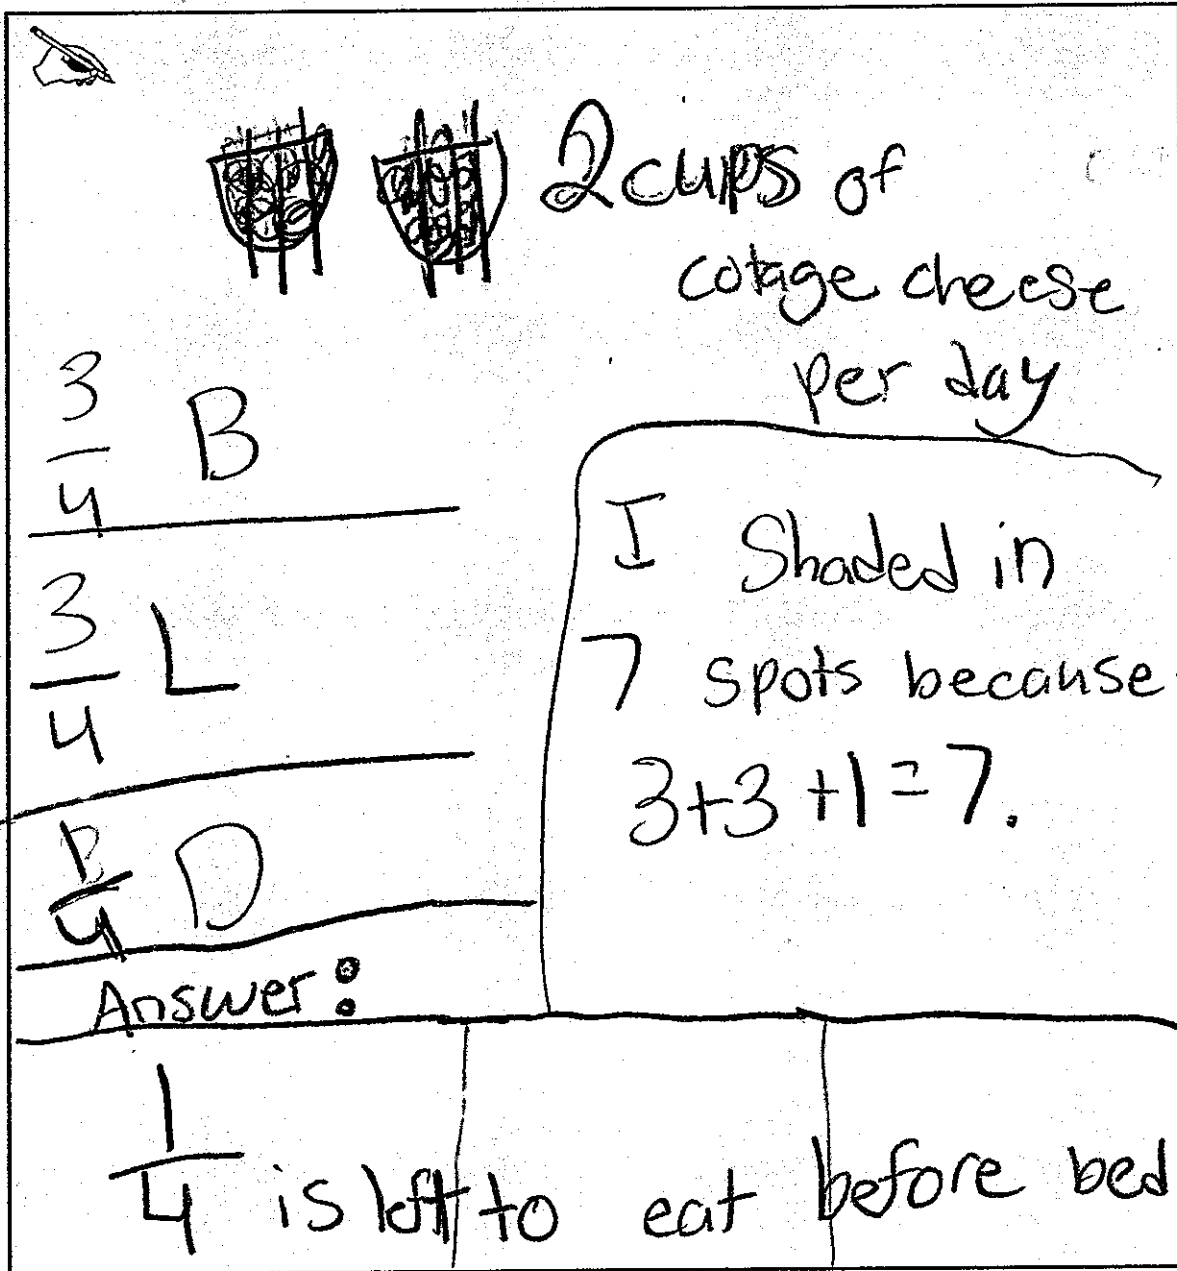 2 cups of
cotage cheese
per day
3/4 B
3/4 L
1/4 D
I Shaded in
7 spots because
3+3+1=7.
Answer:
1/4 is left to eat before bed